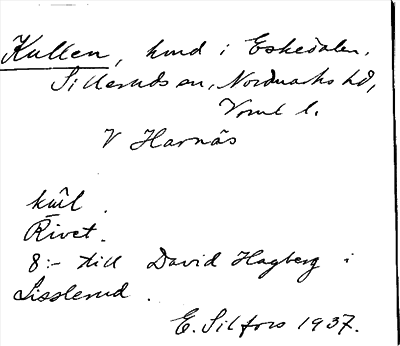 Kullen, hmd i Eskedalen,
Silleruds sn, Nordmarks hd,
Vrml l.
V Harnäs
kul̂l.
Rivet.
8:- till David Hagberg i
Sisslerud.
E. Silfors 1937.